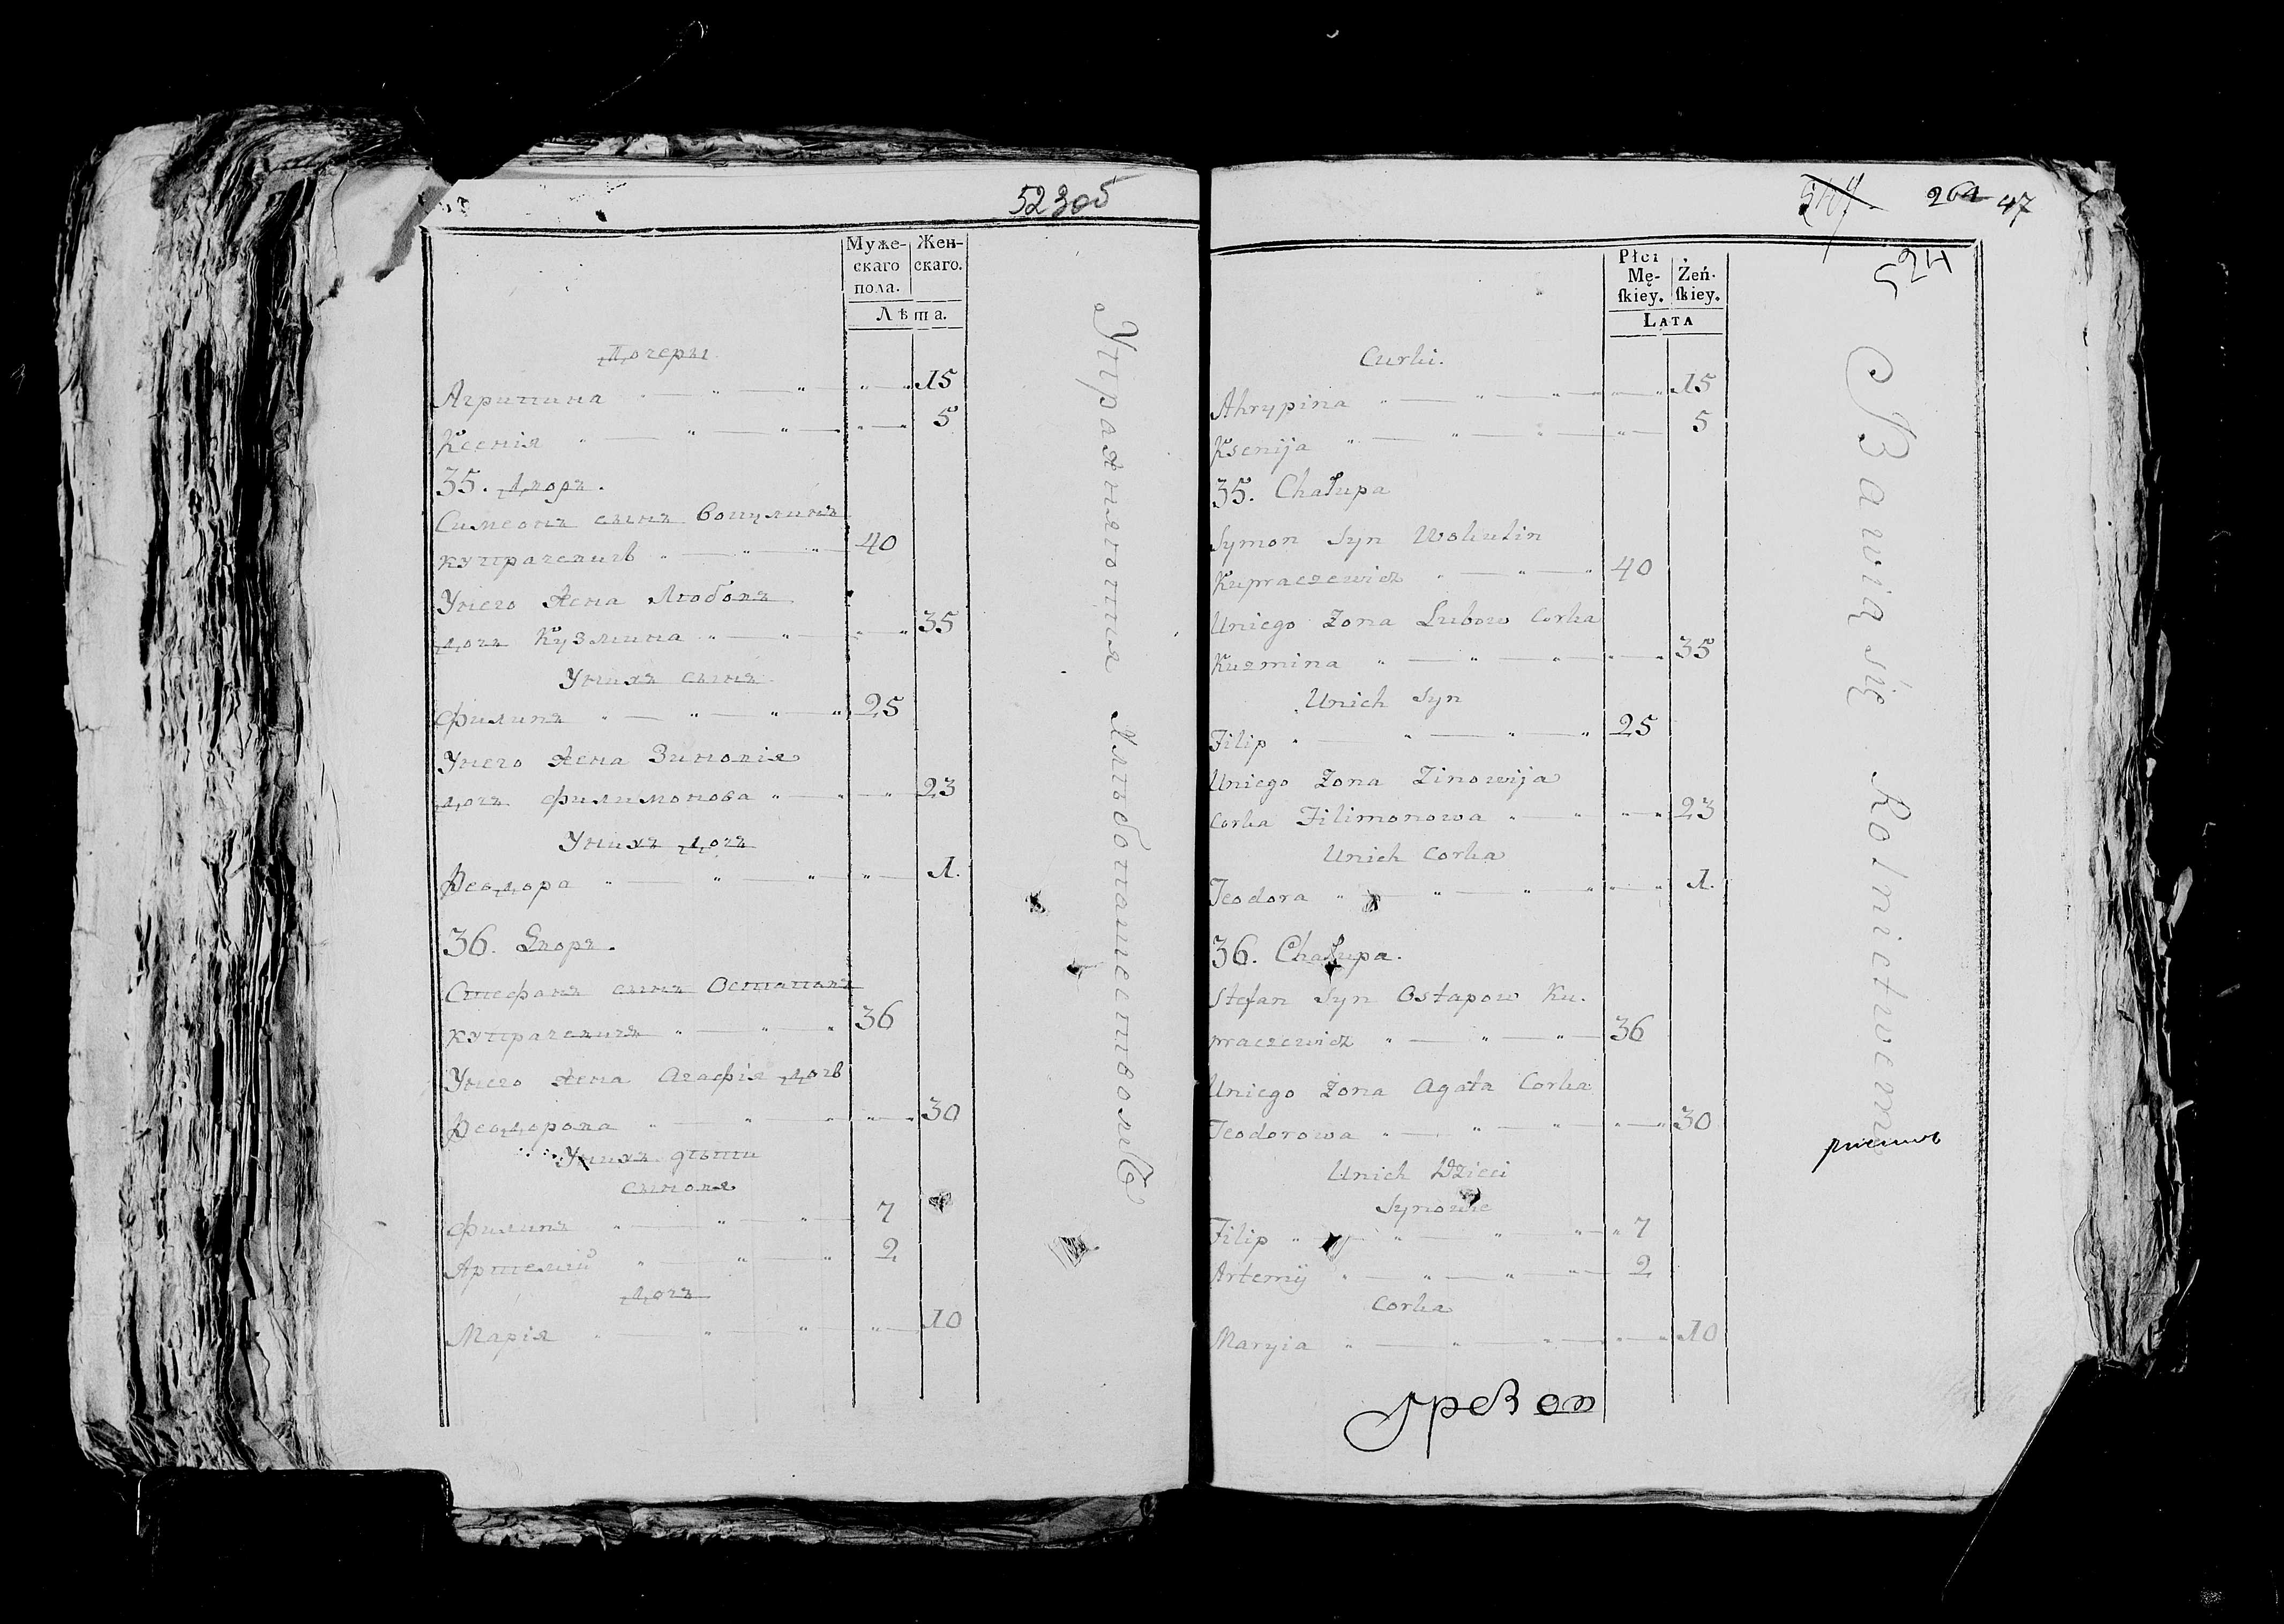 523об
Муже-
скаго
пола.
Жен-
скаго.
Лѣта.
Дочери
Агрипина 15
Ксенія 5
35. Дворъ.
Симеонъ сынъ Вокулинъ
Купрачевичъ 40
Унего жена Любовъ
дочъ Кузмина 35
Унихъ сынъ
Филипъ 25
Унего жена Зиновія
дочъ Филимонова 23
Унихъ дочъ
Ѳеодора 1.
36. Дворъ.
Стефанъ сынъ Остаповъ
Купрачевичъ 36
Унего жена Агафія дочь
Ѳеодорова 30
Унихъ дѣти
сыновя
Филипъ 7
Артемій 2
дочъ
Марія 10
Упражняются Хлѣбопашествомъ
264 47
524
Płci
Mę-
ſkiey.
Żeń-
ſkiey.
Lata
Curki.
Ahrypina 15
Ksenija 5
35. Chałupa
Symon Syn Wokulin
Kupraczewicz 40
Uniego Żona Lubow Corka
Kuzmina 35
Unich Syn
Filip 25
Uniego Żona Zinowija
Corka Filimonowa 23
Unich Corka
Teodora 1.
36. Chałupa.
Stefan Syn Ostapow Ku-
praczewicz 36
Uniego Żona Agata Corka
Teodorowa 30
Unich Dzieci
Synowie
Filip 7
Artemij 2
Corka
Maryia 10
Bawią się Rolnictwem